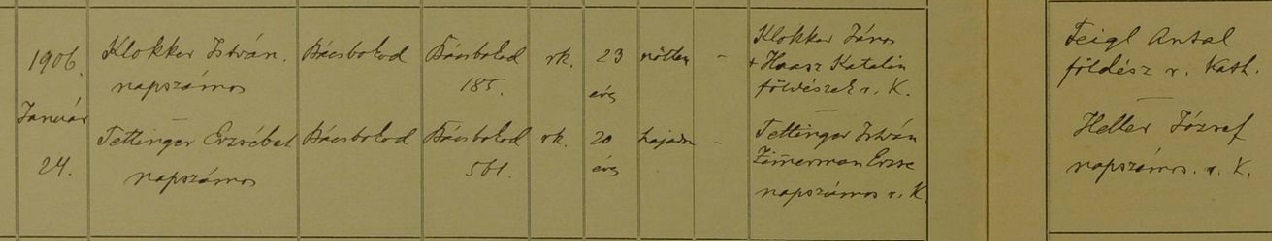 1906.
Január
24.
Klokker István.
napszámos
Bácsbokod
Bácsbokod
185.
rk.
23
éves
nőtlen
-
Klokker János
+ Haasz Katalin
földészek r. K.
Feigl Antal
földész r. Kath.
Tettinger Erzsébet
napszámos
Bácsbokod
Bácsbokod
561.
rk.
20
éves
hajadon
-
Tettinger István
Zimerman Erzse
napszámos r. K.
Heller József
napszámos. r. K.